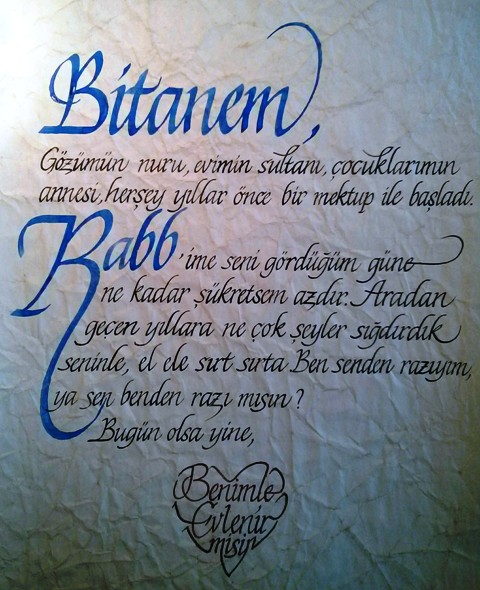 Bitanem,
Gözümün nuru, evimin sultanı, çocuklarımın
annesi, herşey yıllar önce bir mektup ile başladı.
Rabb'ime seni gördüğüm güne
ne kadar şükretsem azdır. Aradan
geçen yıllara ne çok şeyler sığdırdık
seninle, el ele sırt sırta Ben senden razıyım,
ya sen benden razı mısın?
Bugün olsa yine,
Benimle
Evlenir
misin